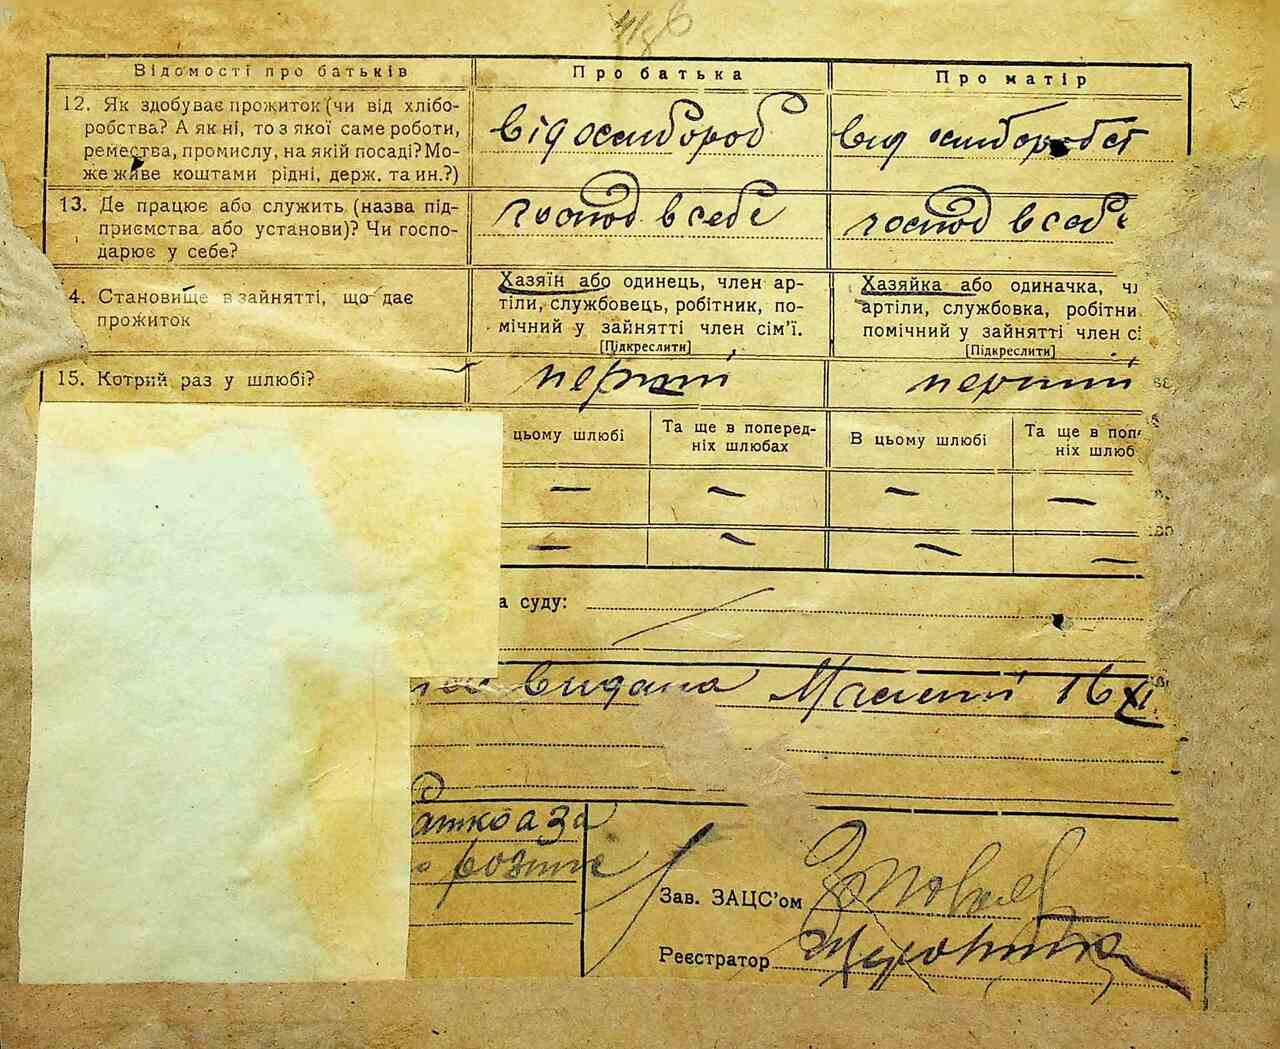 Відомості про батьків
Про батька
Про матір
12. Як здобуває прожиток (чи від хлібо-
робства? А як ні, то з якої саме роботи,
ремества, промислу, на якій посаді? Мо-
же живе коштами рідні, держ. та ин.?)
від
від
13. Де працює або служить (назва під-
приємства або установи)? Чи госпо-
дарює у себе?
господ в себе
господ в себе
4. Становище в зайнятті, що дає
прожиток
Хазяїн або одинець, член ар-
тіли, службовець, робітник, по-
мічний у зайнятті член сім'ї.
[Підкреслити]
Хазяйка або одиначка, чл
артіли, службовка, робітни
помічний у зайнятті член сі
[Підкреслити]
15. Котрий раз у шлюбі?
перший
перший
цьому шлюбі
Та ще в поперед-
ніх шлюбах
В цьому шлюбі
Та ще в попе
ніх шлюб
— — — —
— — — —
а суду:
видана 16/XI
Зав. ЗАЦС'ом
Реєстратор